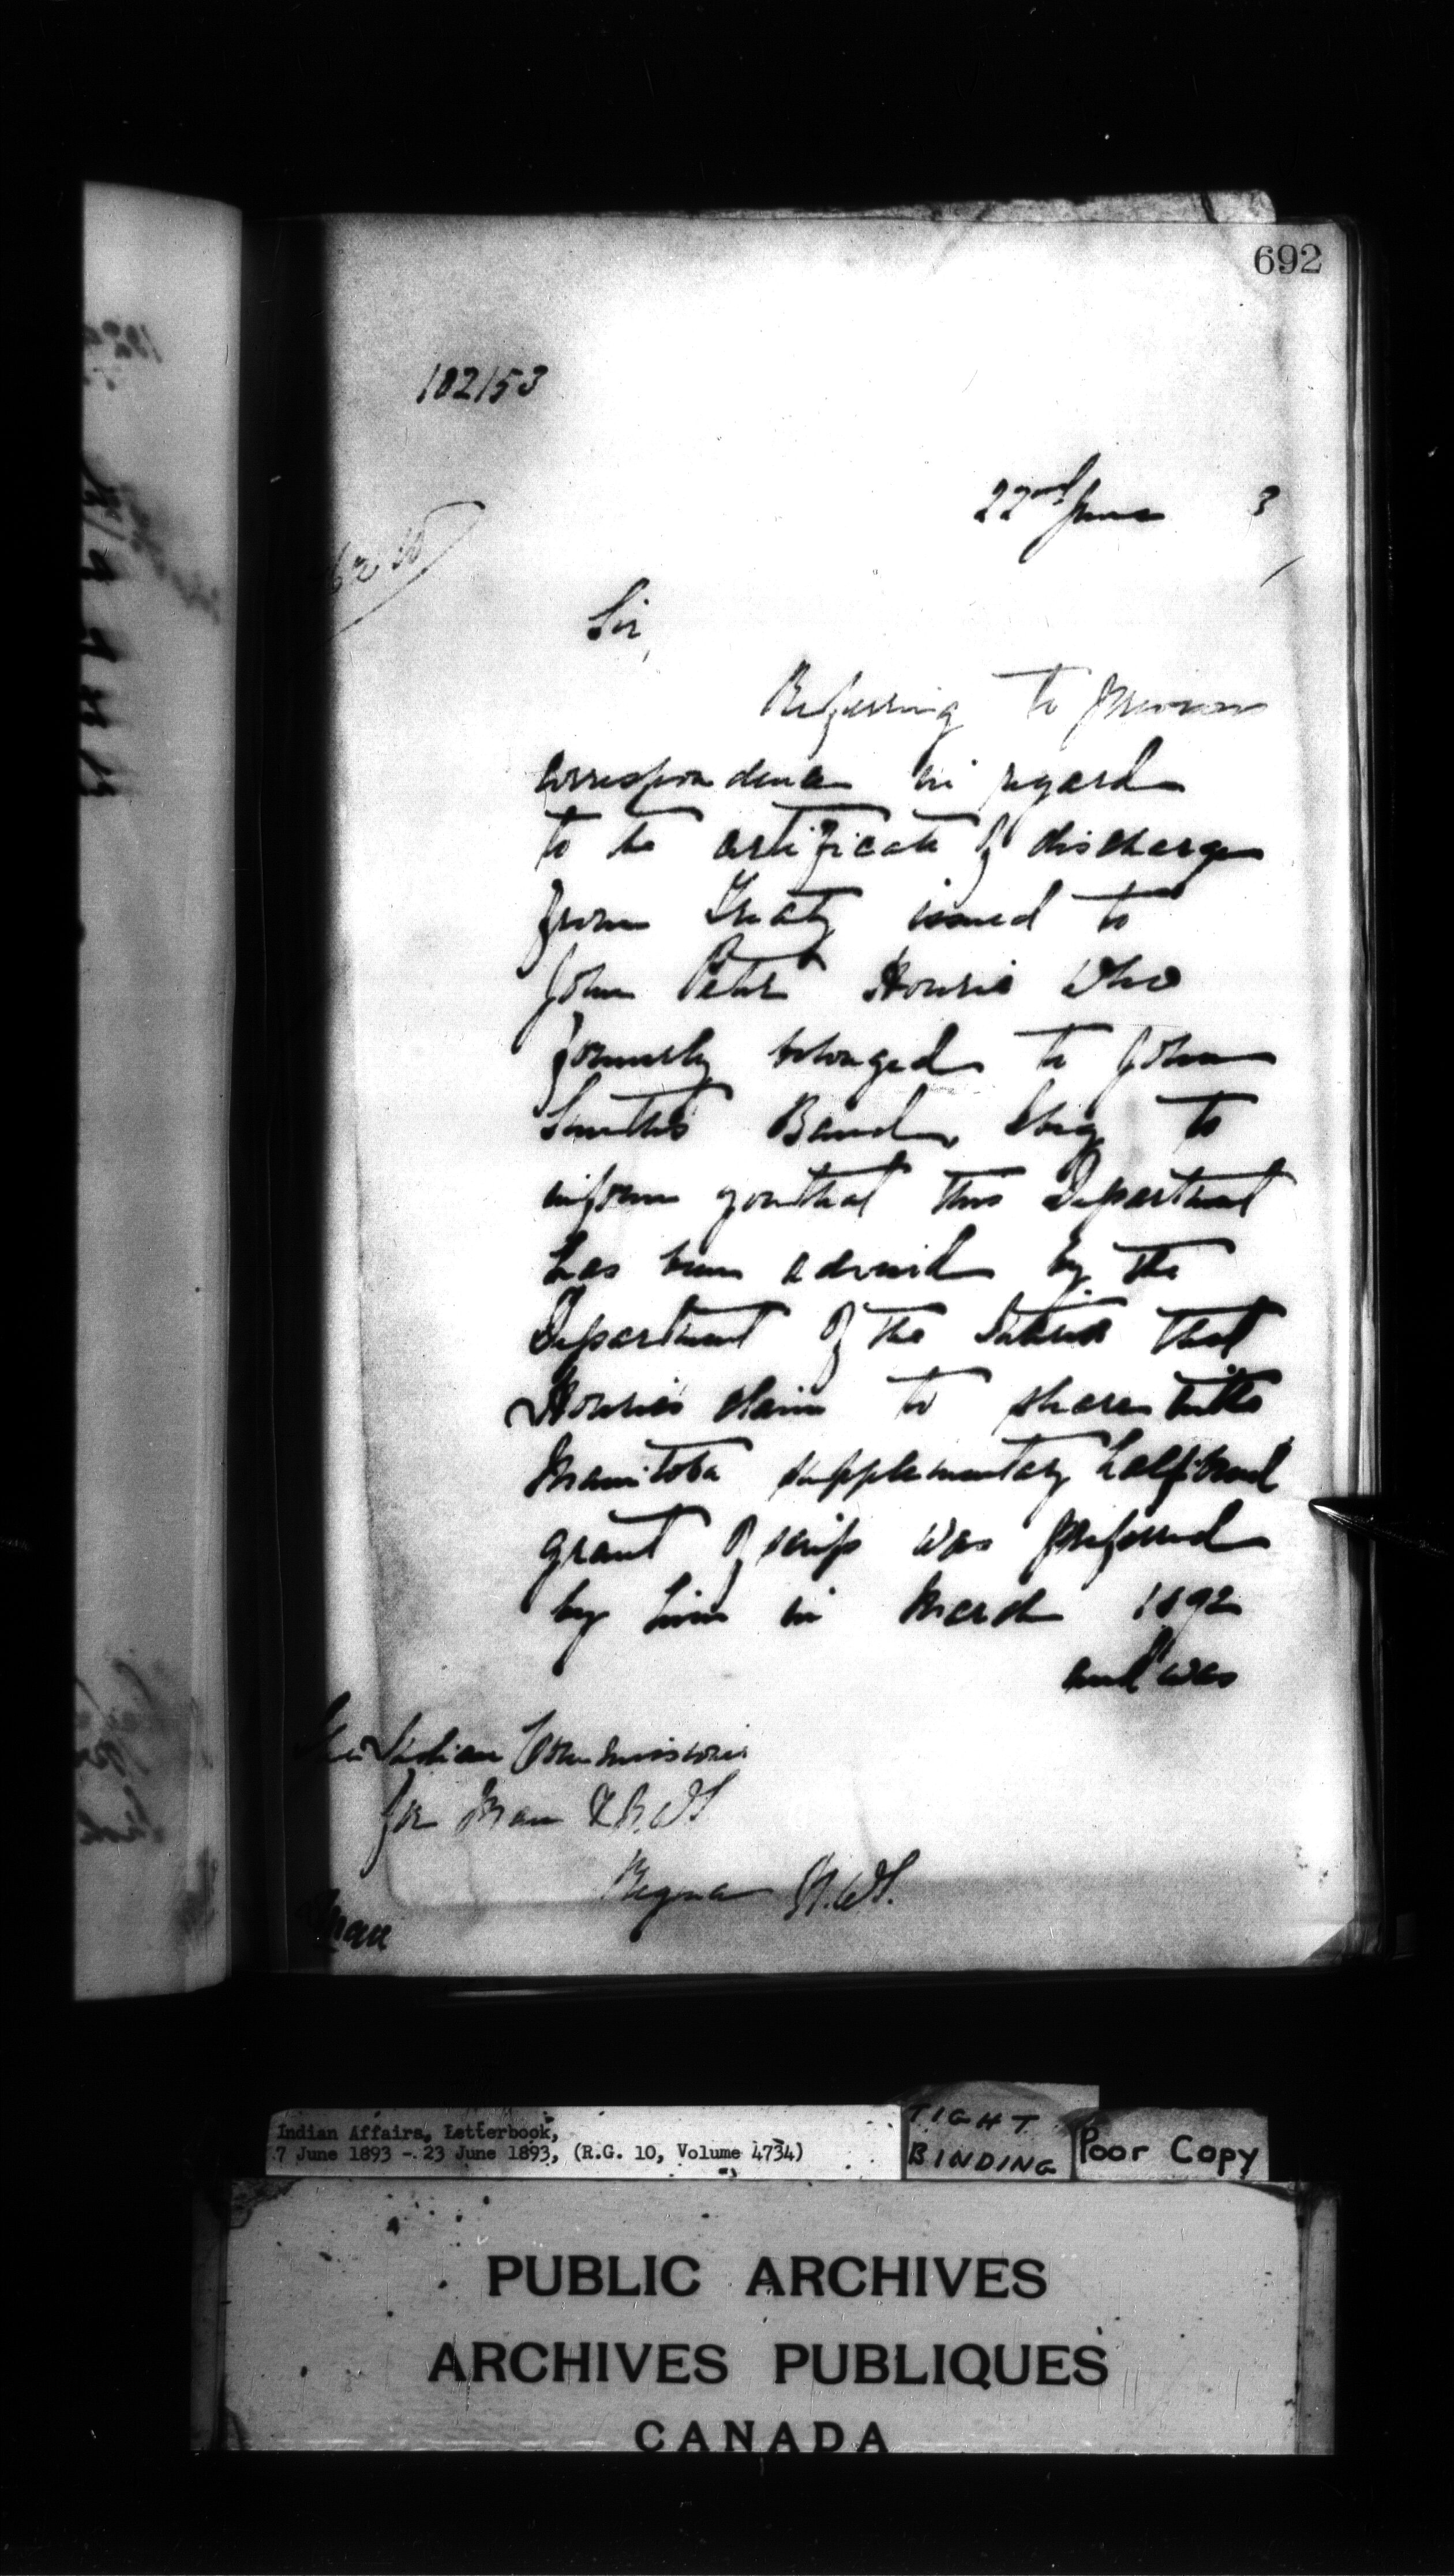 692
102153
22nd June 3
Sir,
Referring to previous
correspondence in regard
to the certificate of discharge
from Treaty issued to
John Peter Hourie who
formerly belonged to John
Smith's Band, I beg to
inform you that this Department
has been advised by the
Department of the Interior that
Hourie's claim to share in the
Manitoba supplementary halfbreed
grant of scrip was preferred
by him in March 1892
and was
The Indian Commissioner
for Man & N.W.T
Regina N.W.T.
Indian Affairs, Letterbook,
7 June 1893 - 23 June 1893, (R.G. 10, Volume 4734)
TIGHT
BINDING
Poor Copy
PUBLIC ARCHIVES
ARCHIVES PUBLIQUES
CANADA